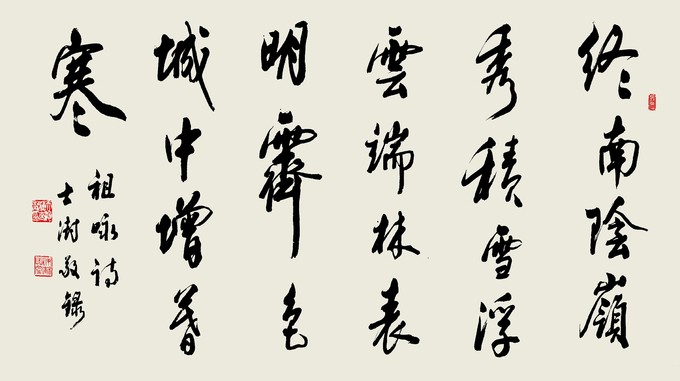 終南陰嶺
秀積雪浮
雲端林表
明霽色
城中增暮
寒
祖咏詩
士澍敬錄